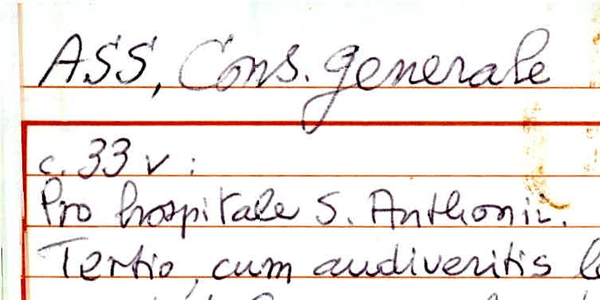 ASS, Cons. generale
c. 33 v :
Pro hospitale S. Anthonii.
Tertio, cum audiveritis